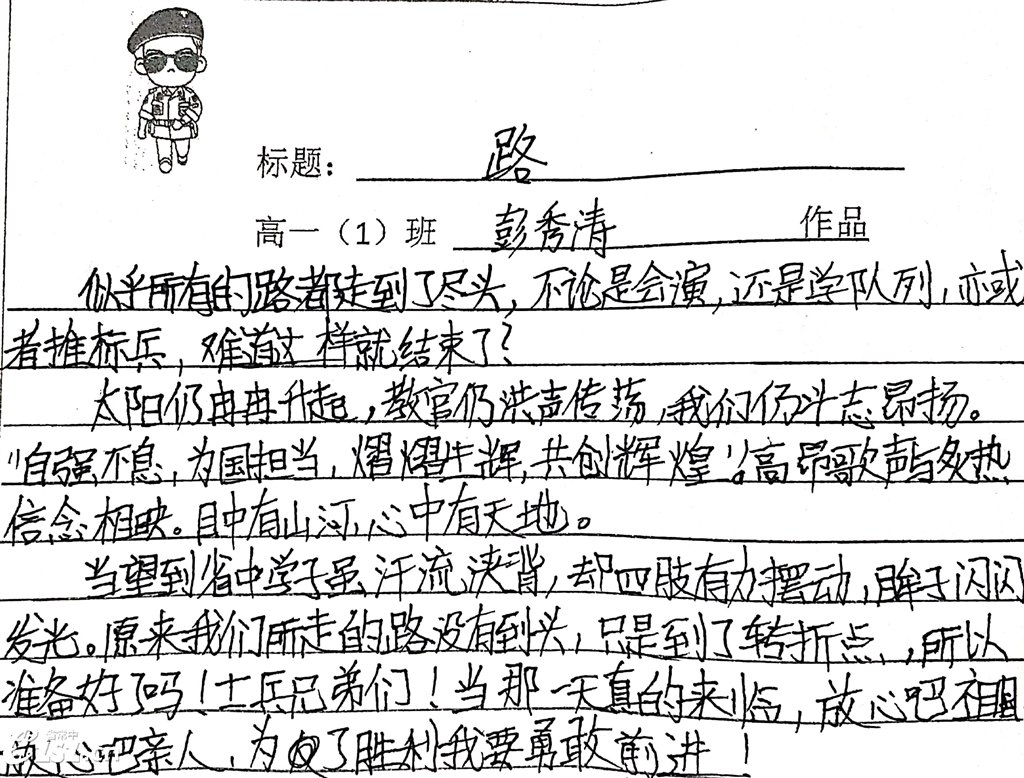 标题: 路
高一（1）班 彭秀清 作品
似乎所有的路都走到了尽头，不论是会演，还是学队列，亦或
者推标兵，难道这样就结束了？
太阳仍冉冉升起，教官仍洪声传荡，我们仍斗志昂扬。
"自强不息，为国担当，熠熠生辉，共创辉煌"。高昂歌声与炙热
信念相映。目中有山河，心中有天地。
当望到省中学子虽汗流浃背，却四肢有力摆动，眸子闪闪
发光。原来我们所走的路没有到头，只是到了转折点，所以
准备好了吗！士兵兄弟们！当那一天真的来临，放心吧祖国
放心吧亲人，为了胜利我要勇敢前进！